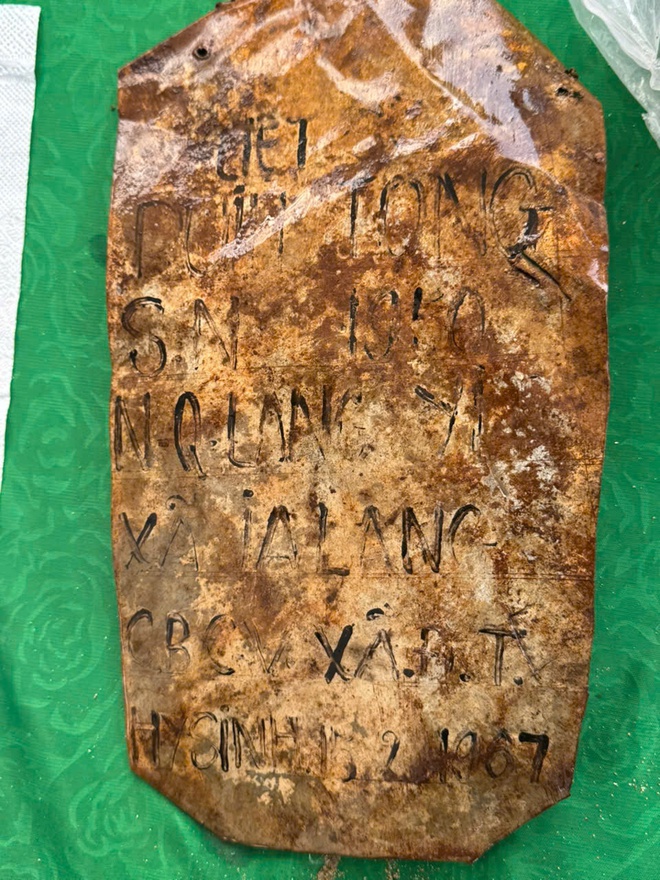 LIỆT
TONG
S.N 1950
N.Q. LANG YÍ
XÃ iALANG
CBCV XÃ.
HYSINH.15 2 1967